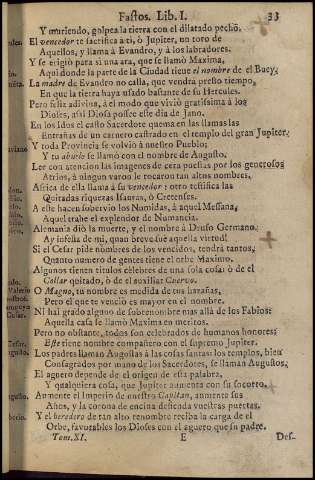 Fastos. Lib. I. 33
Y muriendo, golpea la tierra con el dilatado pecho.
El vencedor te sacrifica a ti, ò Jupiter, un toro de
Aquellos, y llama à Evandro, y à los labradores.
Y se erigiò para sì una ara, que se llamò Maxima,
Aqui donde la parte de la Ciudad tiene el nombre de el Buey;
La madre de Evandro no calla, que vendrà presto tiempo,
En que la tierra haya usado bastante de su Hercules.
Pero feliz adivina, à el modo que viviò gratissima à los
Dioses, assi Diosa possee este dia de Jano.
En los Idos el casto Sacerdote quema en las llamas las
Entrañas de un carnero castrado en el templo del gran Jupiter;
Y toda Provincia se volviò à nuestro Pueblo;
Y tu abuelo se llamò con el nombre de Augusto.
Lee con atencion las imagenes de cera puestas por los generosos
Atrios, à ningun varon le tocaron tan altos nombres.
Africa de ella llama à su vencedor: otro testifica las
Quitadas riquezas Isauras, ò Cretenses.
A este hacen sobervio los Numidas, à aquel Messana;
Aquel trahe el explendor de Numancia.
Alemania diò la muerte, y el nombre à Druso Germano.
Ay infeliz de mi, quan breve fue aquella virtud!
Si el Cesar pide nombres de los vencidos, tendrà tantos,
Quanto numero de gentes tiene el orbe Maximo.
Algunos tienen titulos célebres de una sola cosa: ò de el
Collar quitado, ò de el auxiliar Cuervo.
O Magno, tu nombre es medida de tus hazañas,
Pero el que te venciò es mayor en el nombre.
Ni hai grado alguno de sobrenombre mas allà de los Fabios:
Aquella casa se llamò Maxima en meritos.
Pero no obstante, todos son celebrados de humanos honores:
Este tiene nombre compañero con el supremo Jupiter.
Los padres llaman Augustas à las cosas santas: los templos, bien
Consagrados por mano de los Sacerdotes, se llaman Augustos;
El aguero depende de el origen de esta palabra,
Y qualquiera cosa, que Jupiter aumenta con su socorro.
Aumente el Imperio de nuestro Capitan, aumente sus
Años, y la corona de encina defienda vuestras puertas.
Y el heredero de tan alto renombre reciba la carga de el
Orbe, favorables los Dioses con el aguero que su padre.
Tom. XI. E Des-